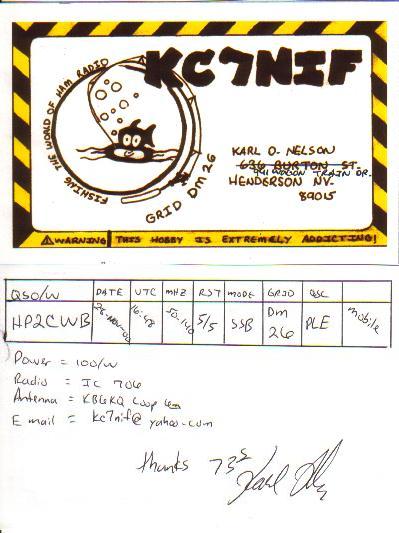 KC7NIF
FISHING THE WORLD OF HAM RADIO
GRID DM 26
KARL O. NELSON
636 BURTON ST.
941 WAGON TRAIN DR.
HENDERSON NV.
89015
⚠WARNING! THIS HOBBY IS EXTREMELY ADDICTING!
QSO/W DATE UTC MHZ RST MODE GRID QSL
HP2CWB 26-NOV-00 16:48 50.140 5/5 SSB DM 26 PLE mobile
Power = 100/W
Radio = IC 706
Antenna = KB6KQ Loop 6m
E mail = kc7nif@yahoo.com
thanks 73s Karl